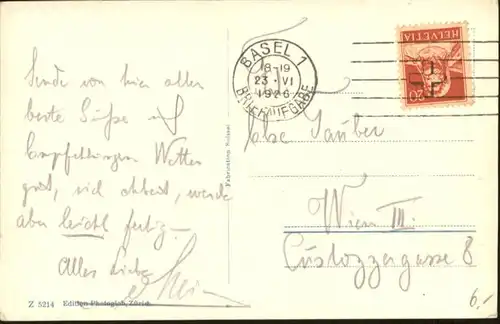 Sende von hier allen
beste Grüße und
Empfehlungen Wetter
gut, viel Arbeit, werde
aber leicht fertig.
Alles Liebe
Z 5214 Edition Photoglob, Zürich.
BASEL 1
18-19
23. VI
1926
BRIEFAUFGABE
HELVETIA
20
Else Tauber
Wien III.
Custozzagasse 8
6.-